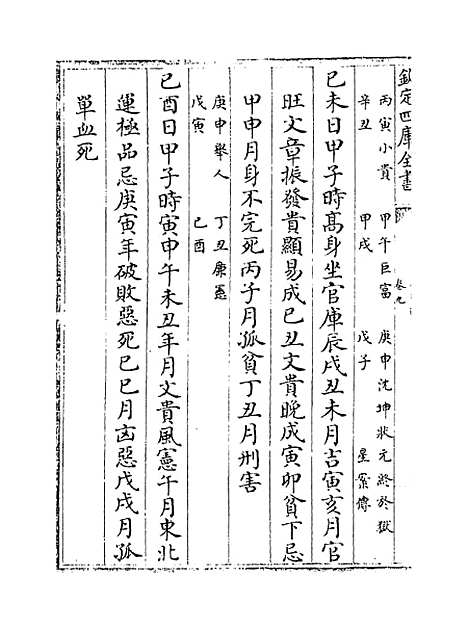 欽定四庫全書
卷九
丙寅小貴　甲午巨富　庚申沈坤狀元終於獄
辛丑　甲戌　戊子　星案傳
己未日甲子時髙身坐官庫辰戌丑未月吉寅亥月官
旺文章振發貴顯易成巳丑文貴晚成寅卯貧下忌
甲申月身不完死丙子月孤貧丁丑月刑害
庚申舉人　丁丑廉憲
戊寅　己酉
己酉日甲子時寅申午未丑年月文貴風憲午月東北
運極品忌庚寅年破敗惡死己巳月凶惡戊戌月孤
單血死